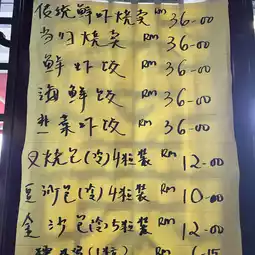 传统鲜虾烧卖 RM 36-00
当归烧卖 RM 36-00
鲜虾饺 RM 36-00
海鲜饺 RM 36-00
韭菜虾饺 RM 36-00
叉烧包(冷)4粒装 RM 12-00
豆沙包(冷)4粒装 RM 10-00
金沙包(冷)5粒装 RM 12-00